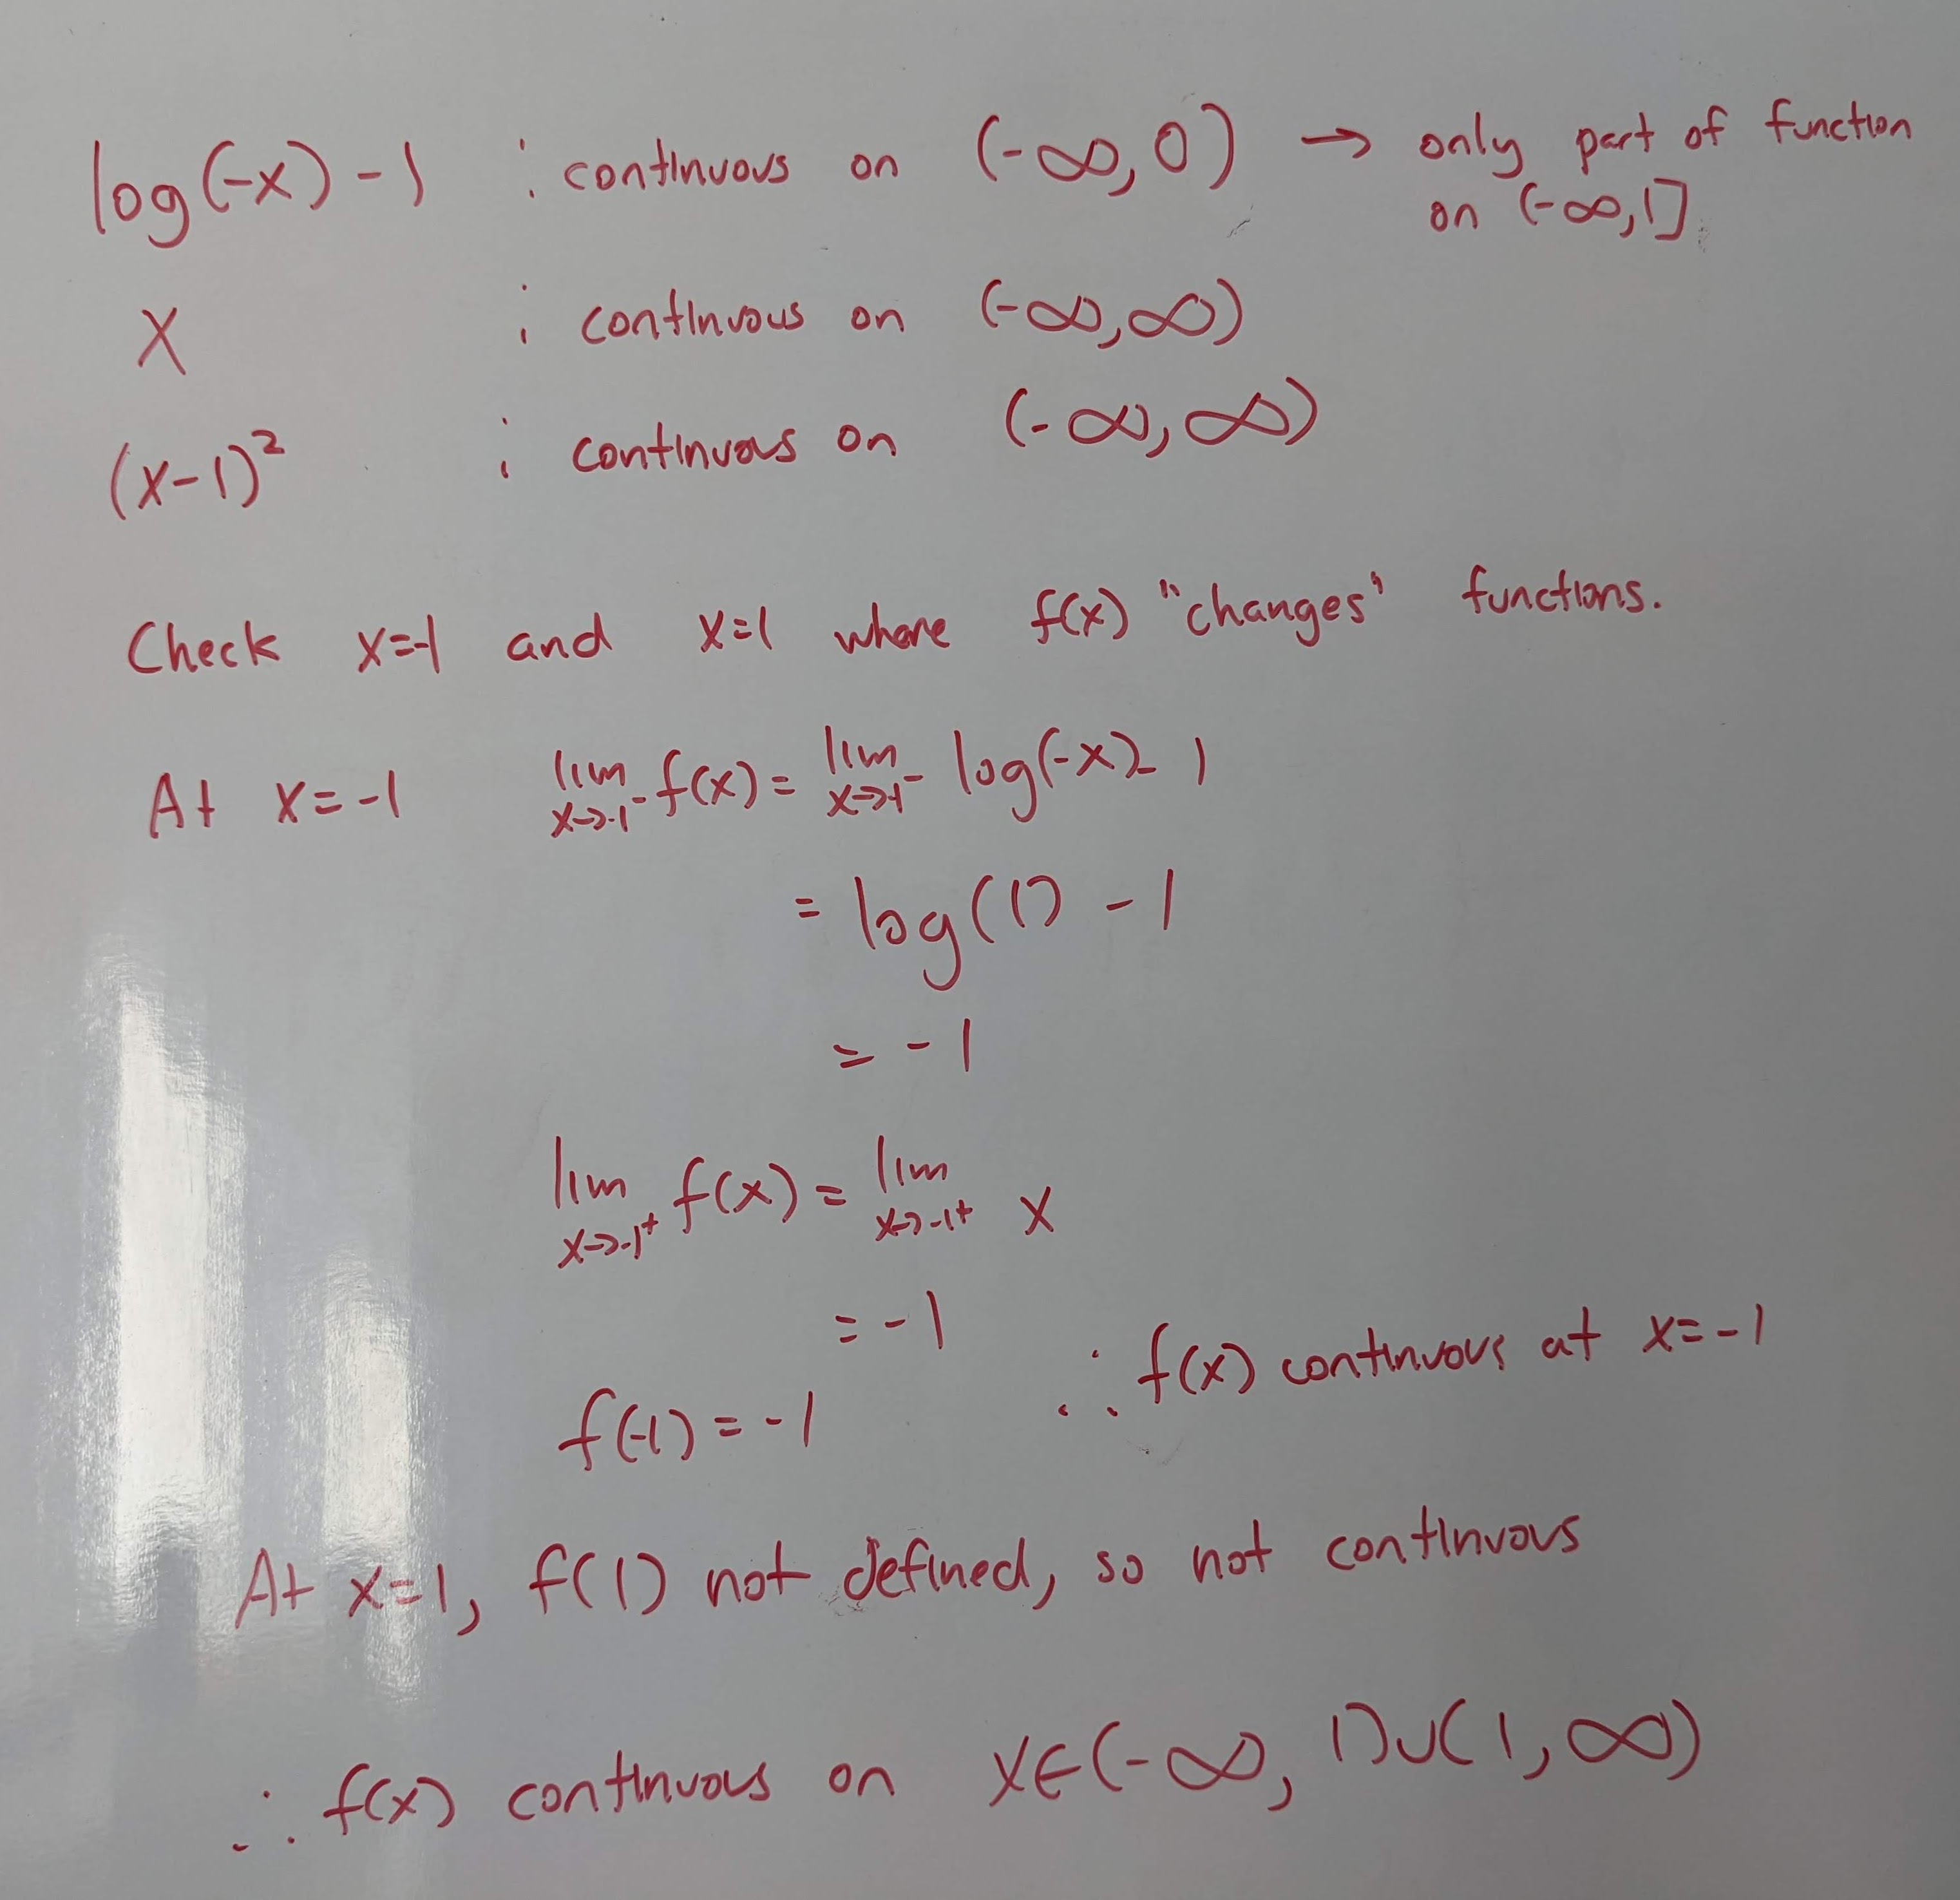 log(-x) - 1 : continuous on (-∞, 0) → only part of function
on (-∞, 1]
x : continuous on (-∞, ∞)
(x-1)² : continuous on (-∞, ∞)
Check x=-1 and x=1 where f(x) "changes" functions.
At x = -1 lim x→-1⁻ f(x) = lim x→-1⁻ log(-x) - 1
= log(1) - 1
= -1
lim x→-1⁺ f(x) = lim x→-1⁺ x
= -1
∴ f(x) continuous at x = -1
f(-1) = -1
At x=1, f(1) not defined, so not continuous
∴ f(x) continuous on x∈(-∞, 1)∪(1, ∞)